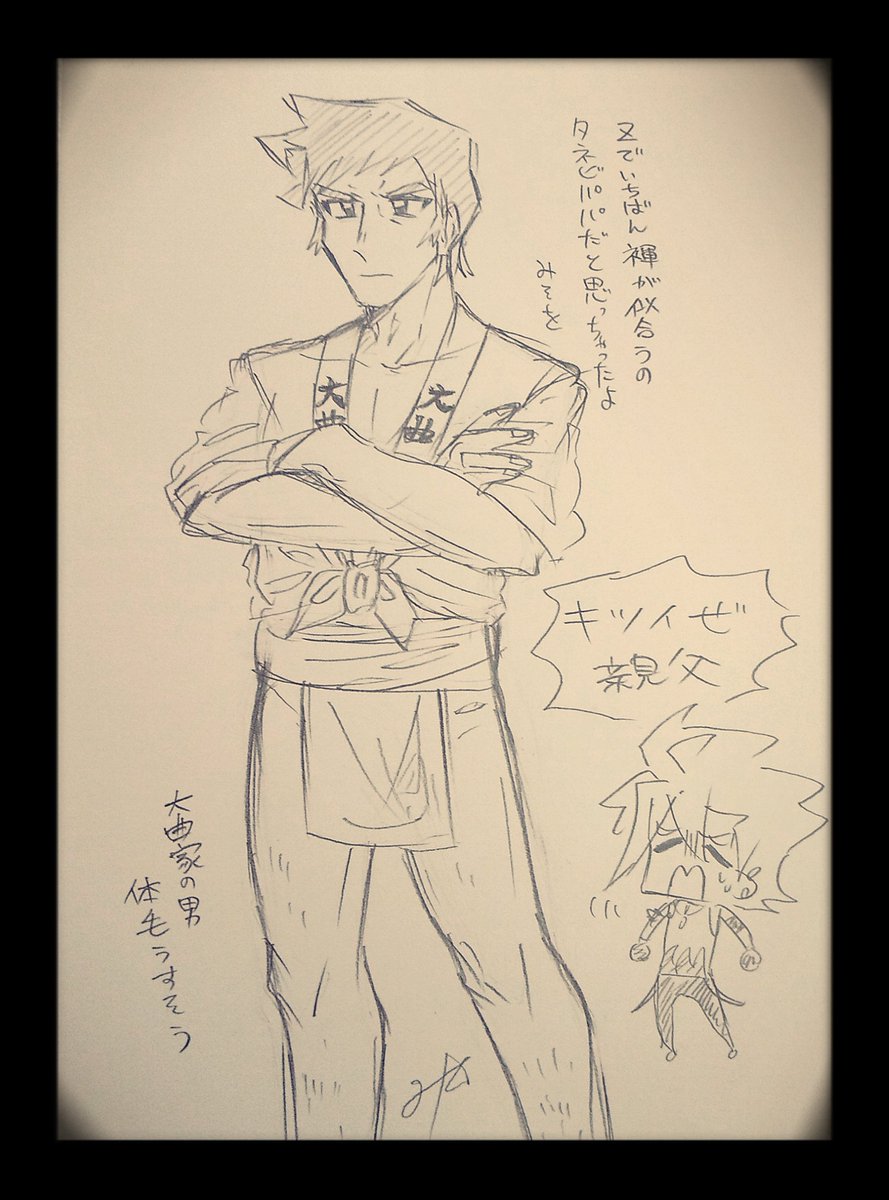 又でいちばん褌が似合うの
タネヒﾟパパだと思っちゃったよ
みそを
大曲
大曲
キツイぜ
親父
大曲家の男
体毛うすそう